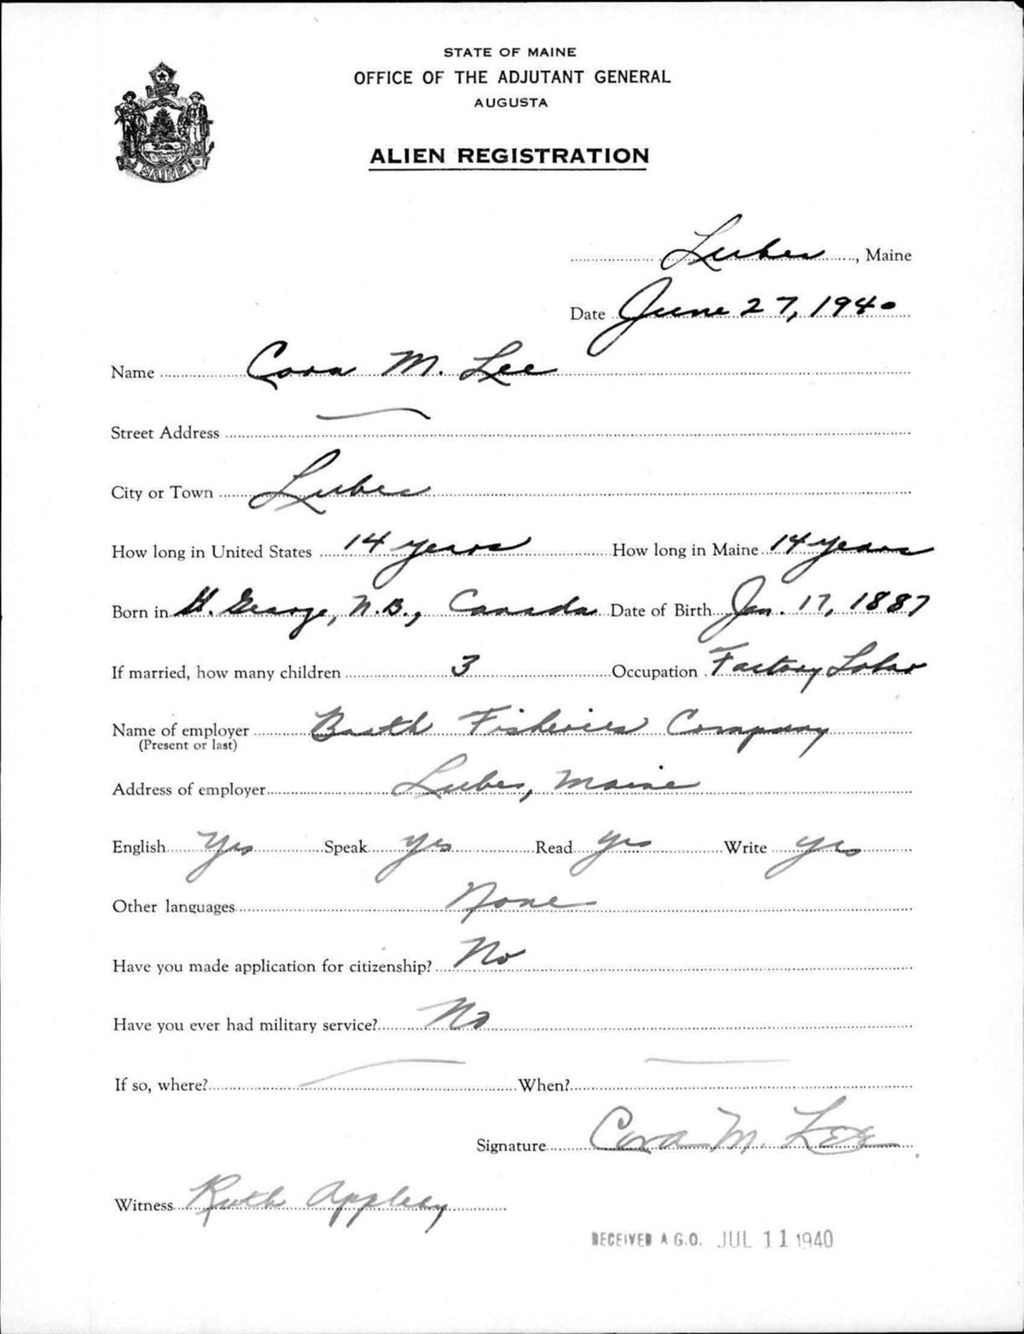 STATE OF MAINE
OFFICE OF THE ADJUTANT GENERAL
AUGUSTA
ALIEN REGISTRATION
MAINE
Lubec, Maine
Date June 27, 1940
Name Cora M. Lee
Street Address —
City or Town Lubec
How long in United States 14 years How long in Maine 14 years
Born in St. George, N.B., Canada Date of Birth Jan. 17, 1887
If married, how many children 3 Occupation Factory Labor
Name of employer Booth Fisheries Company
(Present or last)
Address of employer Lubec, Maine
English Yes Speak yes Read yes Write yes
Other languages None
Have you made application for citizenship? No
Have you ever had military service? No
If so, where? — When? —
Signature Cora M. Lee
Witness Ruth Appleby
RECEIVED A.G.O. JUL 11 1940